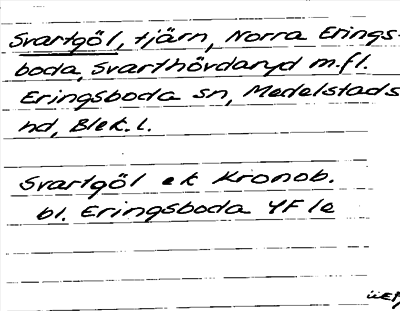 Svartgöl, tjärn, Norra Erings-
boda, Svarthövdaryd m.fl.
Eringsboda sn, Medelstads
hd, Blek. l.
Svartgöl ek Kronob.
bl. Eringsboda 4F le